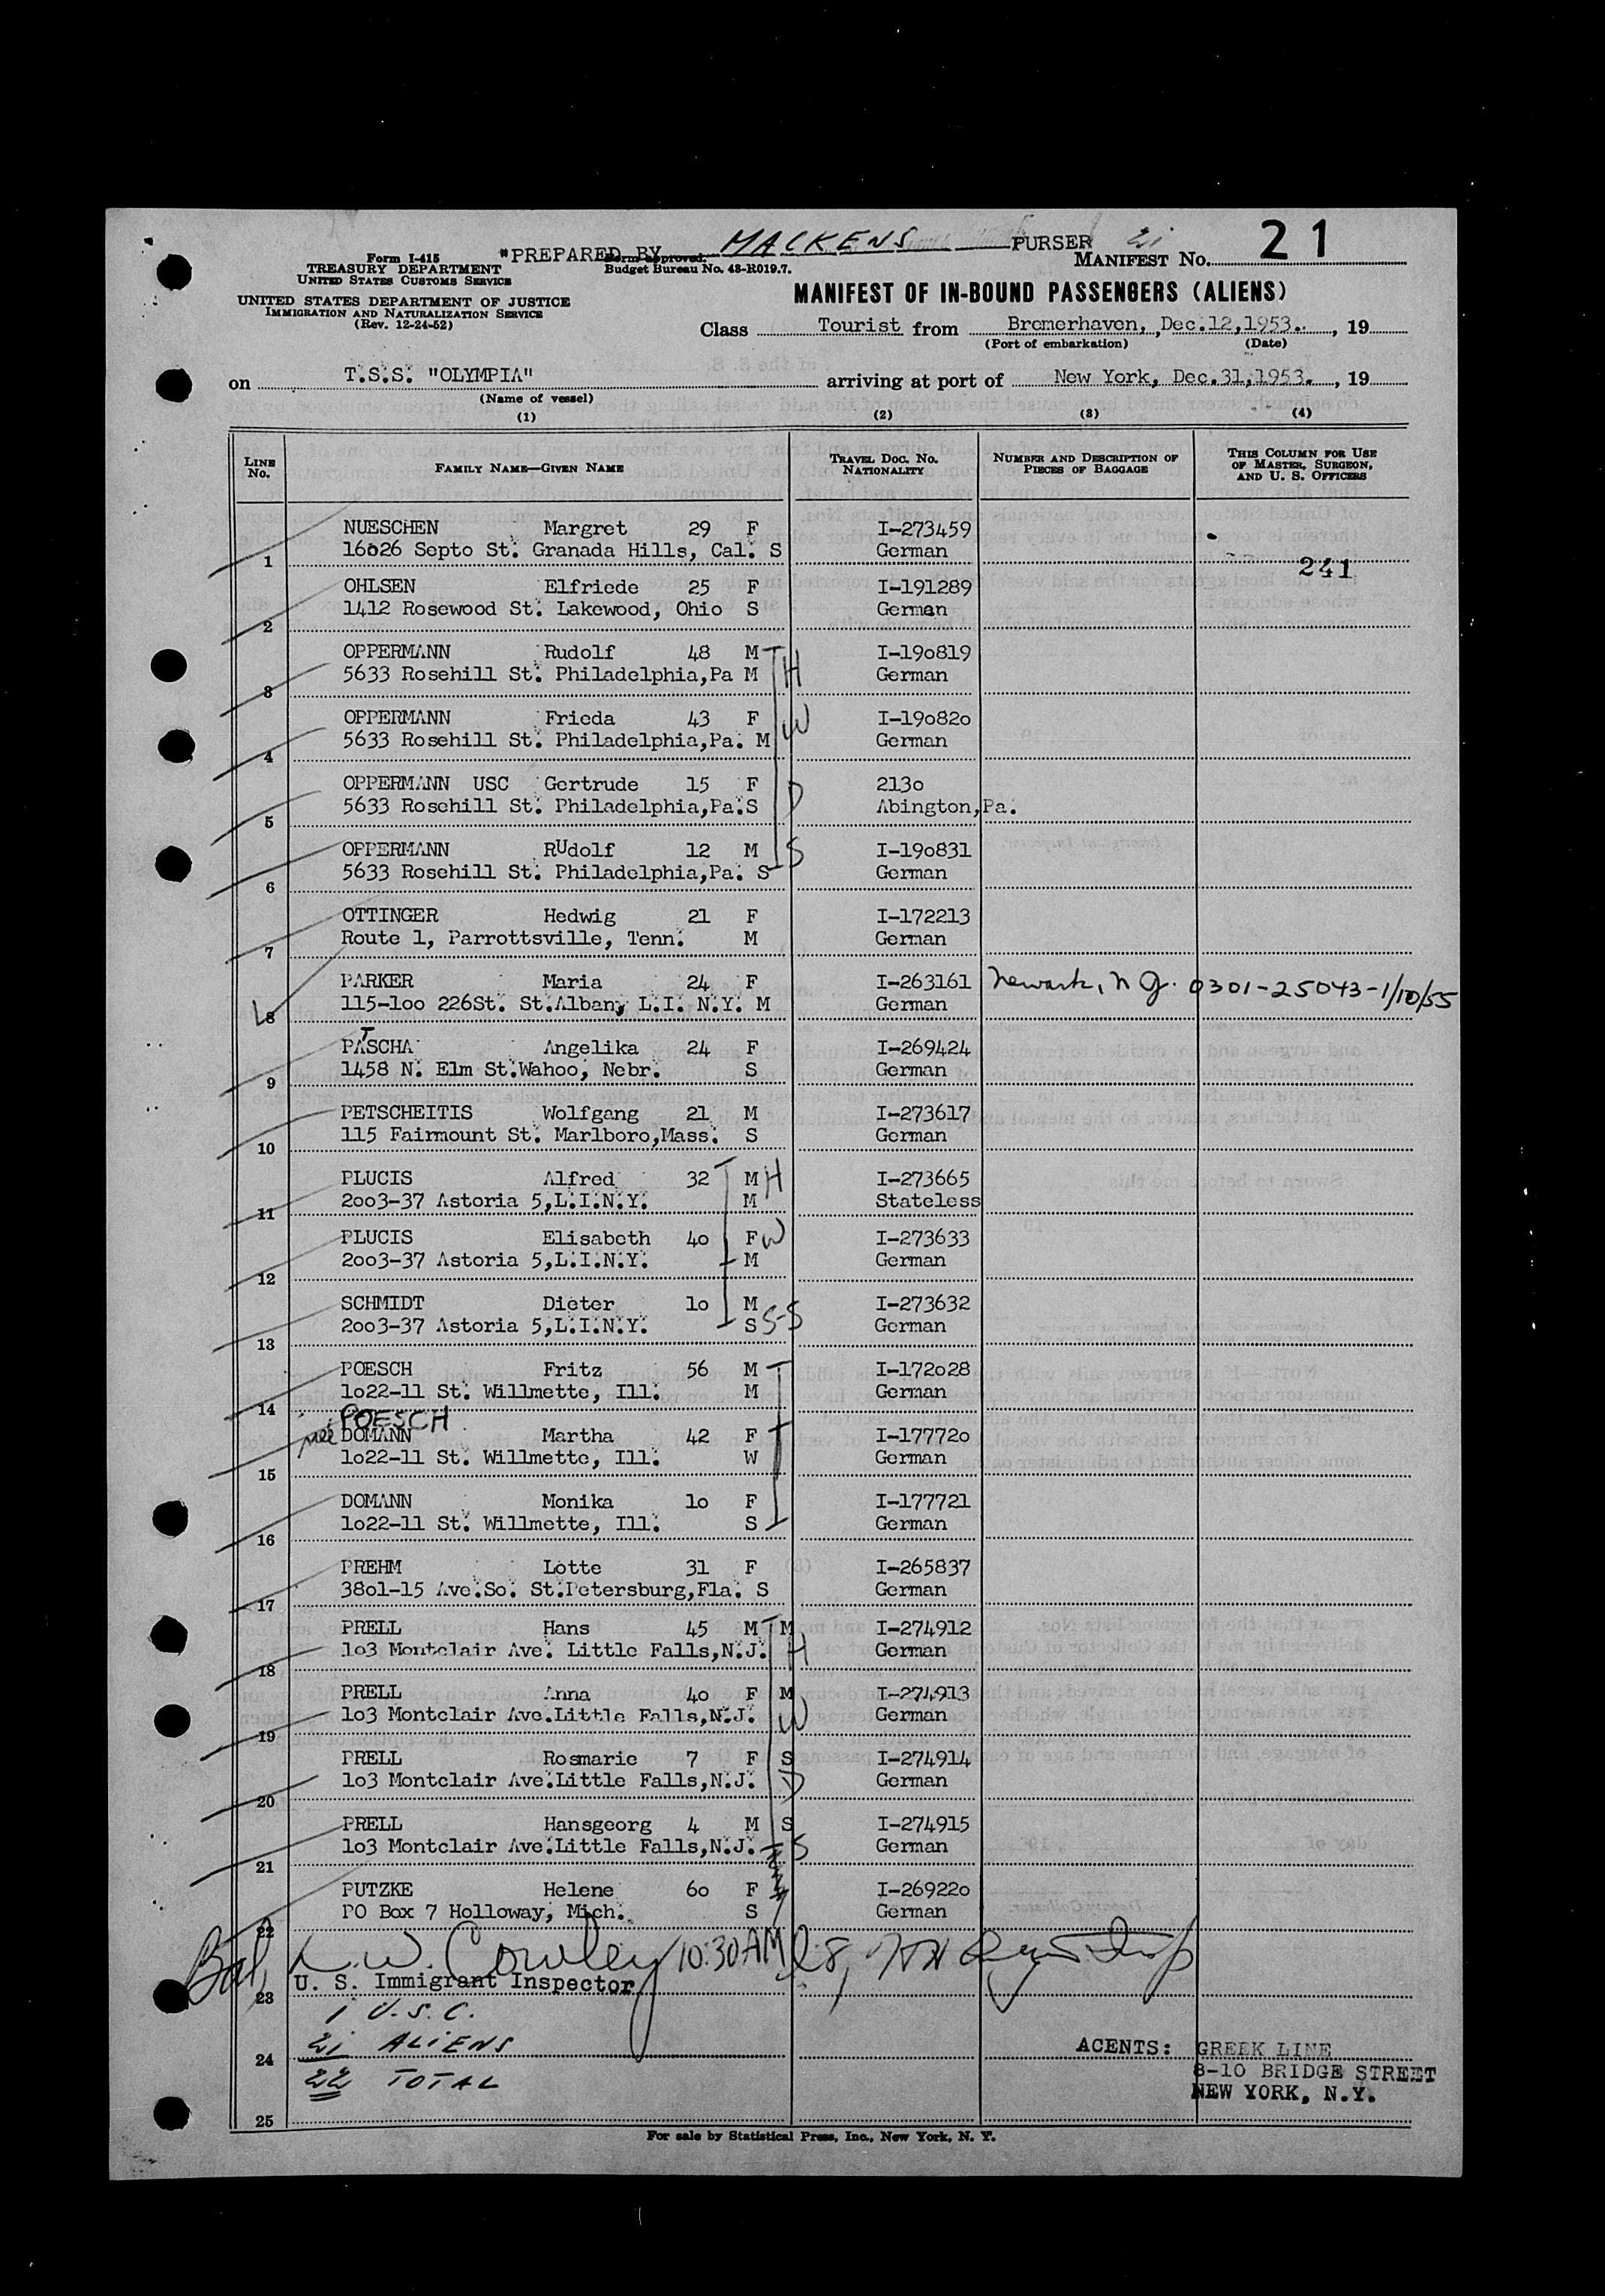 *PREPARED BY MACKENS PURSER 21
Form I-415
TREASURY DEPARTMENT
UNITED STATES CUSTOMS SERVICE
Form approved.
Budget Bureau No. 43-R019.7.
MANIFEST No. 21
UNITED STATES DEPARTMENT OF JUSTICE
IMMIGRATION AND NATURALIZATION SERVICE
(Rev. 12-24-52)
MANIFEST OF IN-BOUND PASSENGERS (ALIENS)
Class Tourist from Bremerhaven, Dec.12,1953., 19
(Port of embarkation) (Date)
on T.S.S. "OLYMPIA" arriving at port of New York, Dec.31,1953., 19
(Name of vessel)
(1) (2) (3) (4)
LINE No. FAMILY NAME—GIVEN NAME TRAVEL DOC. No. NATIONALITY NUMBER AND DESCRIPTION OF PIECES OF BAGGAGE THIS COLUMN FOR USE OF MASTER, SURGEON, AND U. S. OFFICERS
NUESCHEN Margret 29 F I-273459
1 16026 Septo St. Granada Hills, Cal. S German
241
OHLSEN Elfriede 25 F I-191289
2 1412 Rosewood St. Lakewood, Ohio S German
OPPERMANN Rudolf 48 M I-190819
3 5633 Rosehill St. Philadelphia,Pa M H German
OPPERMANN Frieda 43 F W I-190820
4 5633 Rosehill St. Philadelphia,Pa. M German
OPPERMANN USC Gertrude 15 F D 2130
5 5633 Rosehill St. Philadelphia,Pa.S Abington,Pa.
OPPERMANN RUdolf 12 M S I-190831
6 5633 Rosehill St. Philadelphia,Pa. S German
OTTINGER Hedwig 21 F I-172213
7 Route 1, Parrottsville, Tenn. M German
PARKER Maria 24 F I-263161 Newark, N J. 0301-25043-1/10/55
8 115-100 226St. St.Albany L.I. N.Y. M German
PATSCHA Angelika 24 F I-269424
9 1458 N. Elm St.Wahoo, Nebr. S German
PETSCHEITIS Wolfgang 21 M I-273617
10 115 Fairmount St. Marlboro,Mass. S German
PLUCIS Alfred 32 M H I-273665
11 2003-37 Astoria 5,L.I.N.Y. M Stateless
PLUCIS Elisabeth 40 F W I-273633
12 2003-37 Astoria 5,L.I.N.Y. M German
SCHMIDT Dieter 10 M S-S I-273632
13 2003-37 Astoria 5,L.I.N.Y. S German
POESCH Fritz 56 M I-172028
14 1022-11 St. Willmette, Ill. M German
POESCH
née DOMANN Martha 42 F I-177720
15 1022-11 St. Willmette, Ill. W German
DOMANN Monika 10 F I-177721
16 1022-11 St. Willmette, Ill. S German
PREHM Lotte 31 F I-265837
17 3801-15 Ave.So. St.Petersburg,Fla. S German
PRELL Hans 45 M M I-274912
18 103 Montclair Ave. Little Falls,N.J. H German
PRELL Anna 40 F M I-274913
19 103 Montclair Ave.Little Falls,N.J. W German
PRELL Rosmarie 7 F S I-274914
20 103 Montclair Ave.Little Falls,N.J. D German
PRELL Hansgeorg 4 M S I-274915
21 103 Montclair Ave.Little Falls,N.J. S German
PUTZKE Helene 60 F I-269220
22 PO Box 7 Holloway, Mich. S German
Cowley 10:30 AM
23 U. S. Immigrant Inspector
1 U.S.C.
24 21 ALIENS
22 TOTAL
25
AGENTS: GREEK LINE
8-10 BRIDGE STREET
NEW YORK, N.Y.
For sale by Statistical Press, Inc., New York, N. Y.